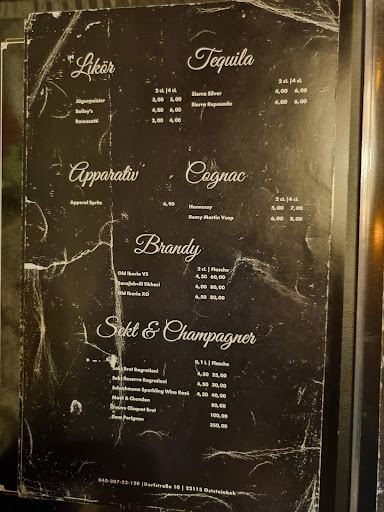 Likör
2 cl. |4 cl.
Jägermeister 3,00 5,00
Bailey's 4,00 6,00
Ramazotti 2,00 4,00
Tequila
2 cl. |4 cl.
Sierra Silver 4,00 6,00
Sierra Reposado 4,00 6,00
Apparativ
Apperol Spritz 6,90
Cognac
2 cl. |4 cl.
Hennessy 5,00 7,00
Remy Martin Vsop 6,00 8,00
Brandy
2 cl. | Flasche
Old Iberia VS 4,50 60,00
Sarajishvili 6,00 80,00
Old Iberia XO 6,50 80,00
Sekt & Champagner
0,1 L | Flasche
Sekt Brut Bagrationi 4,50 25,00
Sekt Reserve Bagrationi 4,50 30,00
Schuchmann Sparkling Wine Rosé 4,50 40,00
Moet & Chandon 80,00
Cliquot Brut 100,00
Dom Perignon 350,00
040-307-22-120 |Dorfstraße 10 | 22113 Oststeinbek